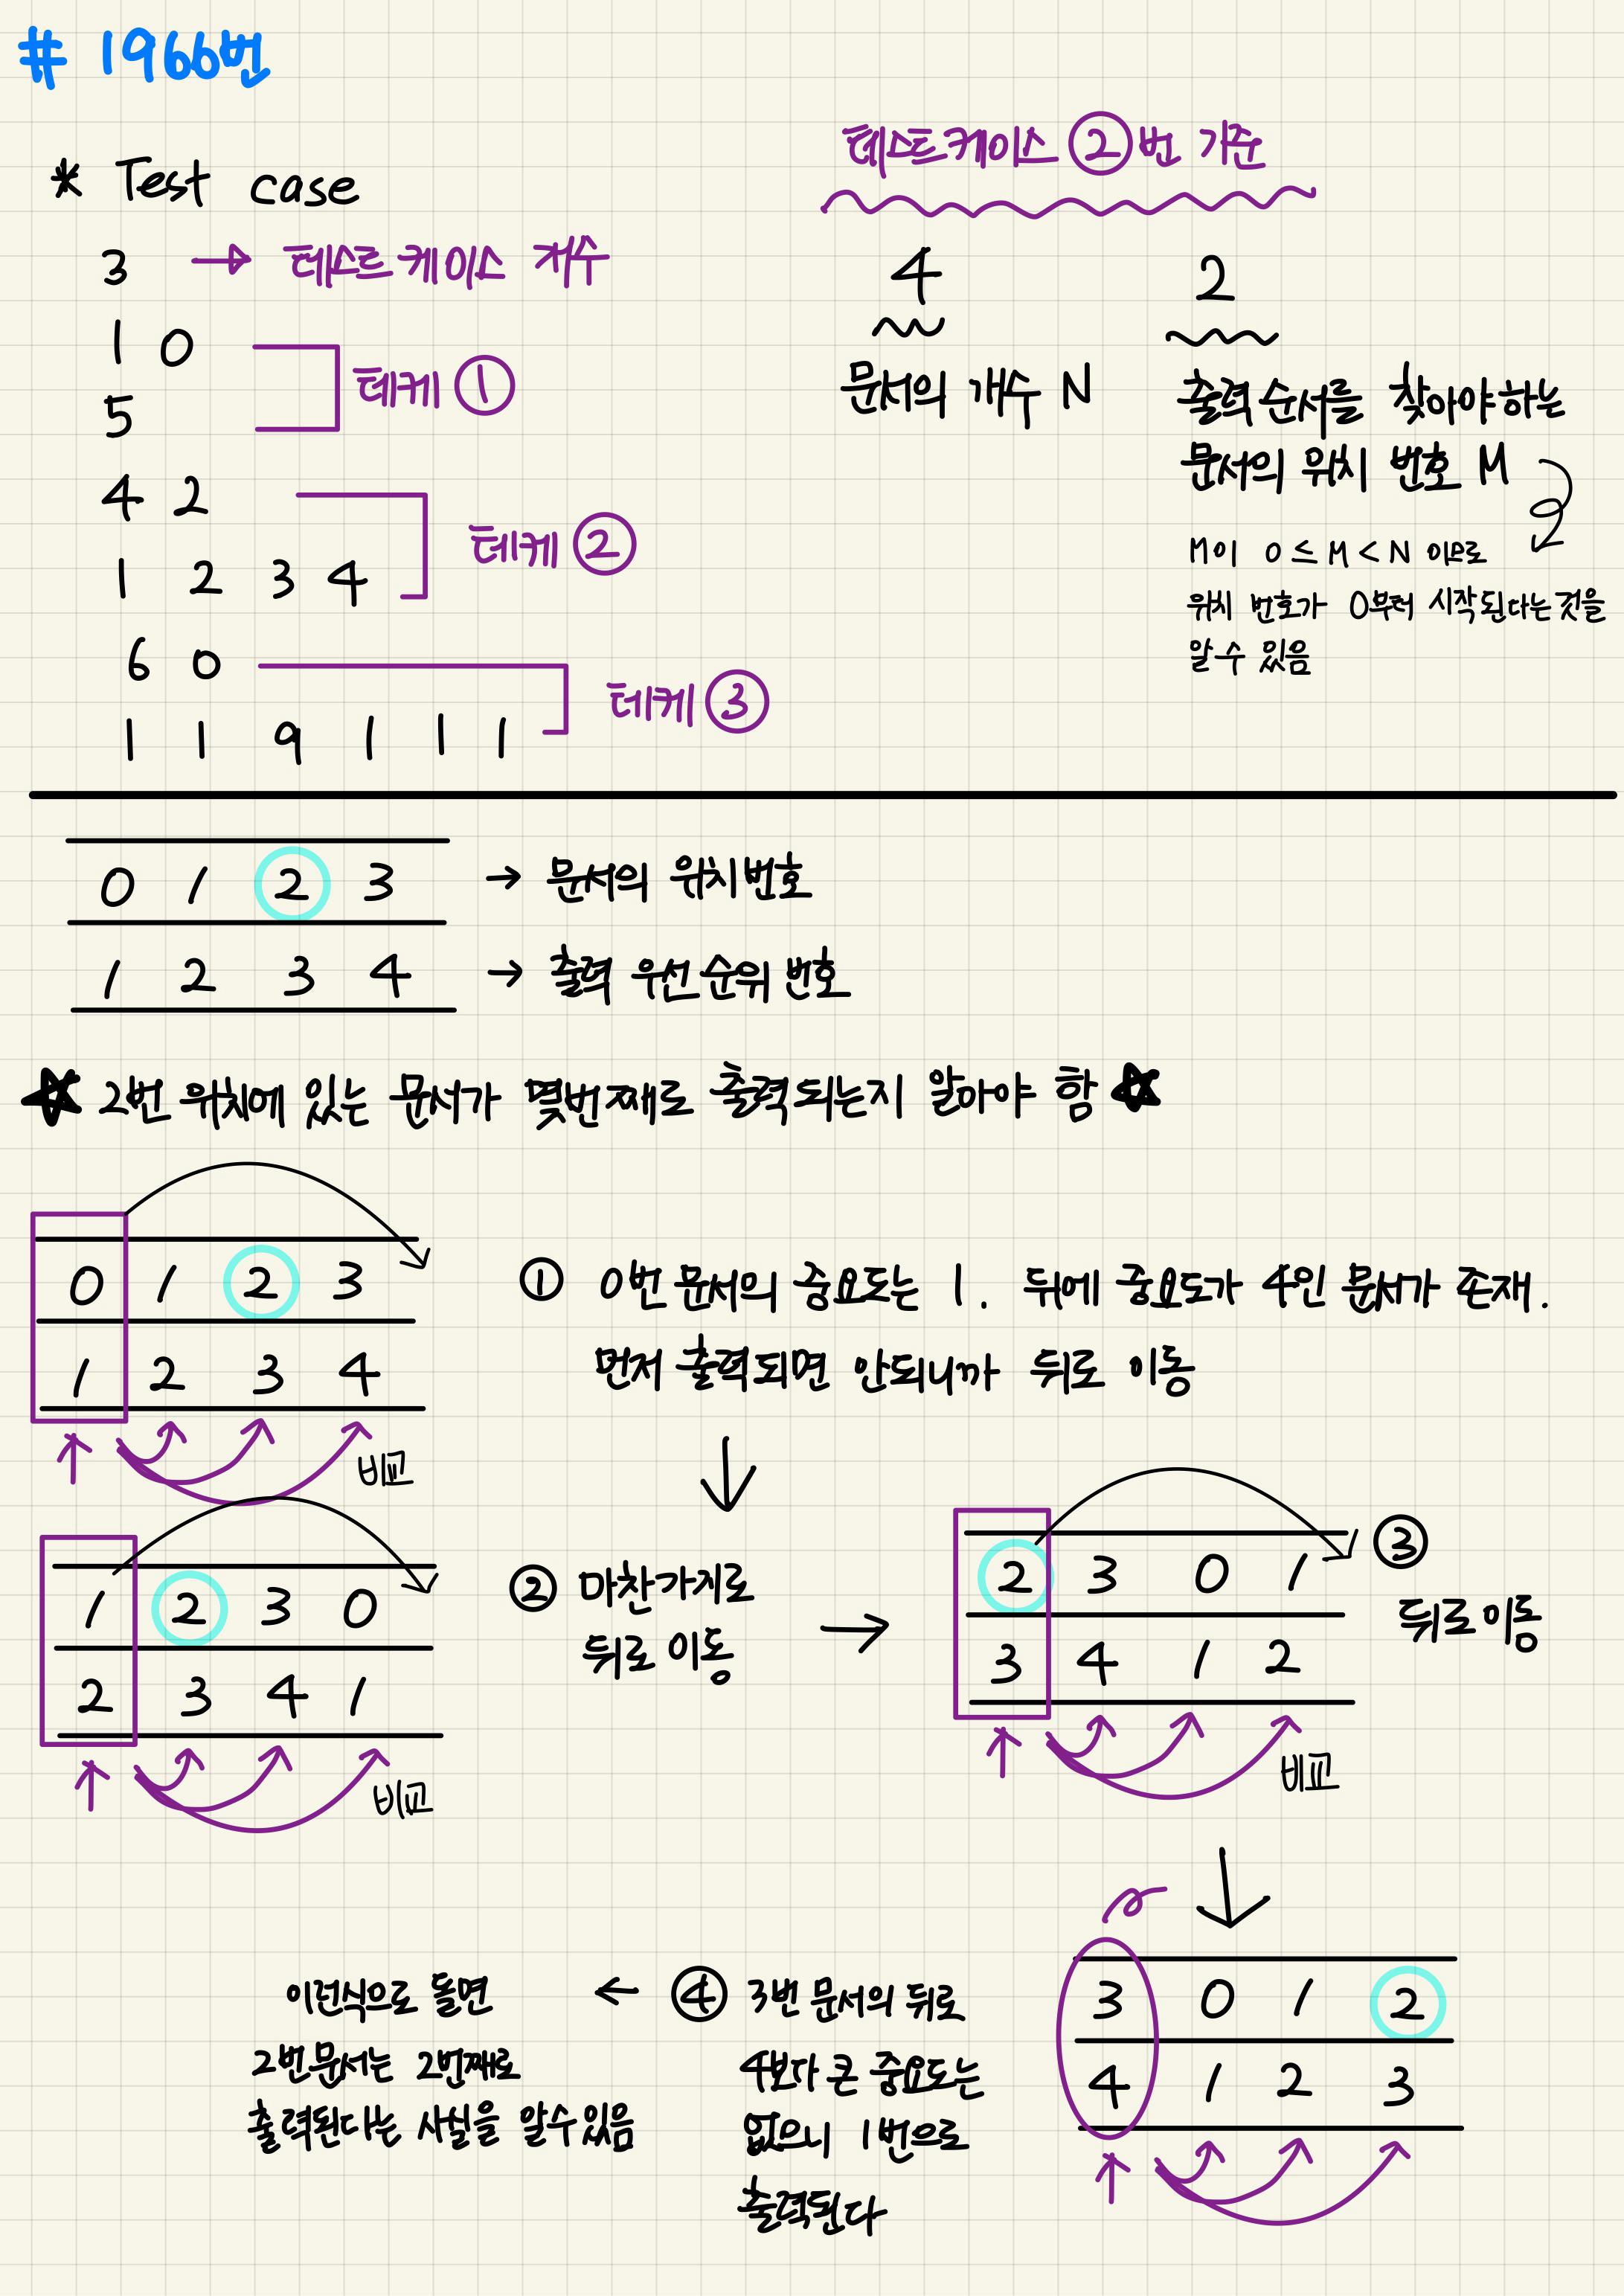 # 1966번
* Test case
3 → 테스트케이스 개수
1 0
5
테케 ①
4 2
1 2 3 4
테케 ②
6 0
1 1 9 1 1 1
테케 ③
테스트케이스 ② 번 기준
4
문서의 개수 N
2
출력 순서를 찾아야하는
문서의 위치 번호 M
M이 0 ≤ M < N 이므로
위치 번호가 0부터 시작된다는것을
알수 있음
0 1 2 3 → 문서의 위치번호
1 2 3 4 → 출력 우선순위 번호
★ 2번 위치에 있는 문서가 몇번째로 출력되는지 알아야 함 ★
0 1 2 3
1 2 3 4
비교
① 0번 문서의 중요도는 1. 뒤에 중요도가 4인 문서가 존재.
먼저 출력되면 안되니까 뒤로 이동
↓
1 2 3 0
2 3 4 1
비교
② 마찬가지로
뒤로 이동
→
2 3 0 1
3 4 1 2
비교
③
뒤로 이동
↓
3 0 1 2
4 1 2 3
④ 3번 문서의 뒤로
4보다 큰 중요도는
없으니 1번으로
출력된다
←
이런식으로 돌면
2번문서는 2번째로
출력된다는 사실을 알수있음